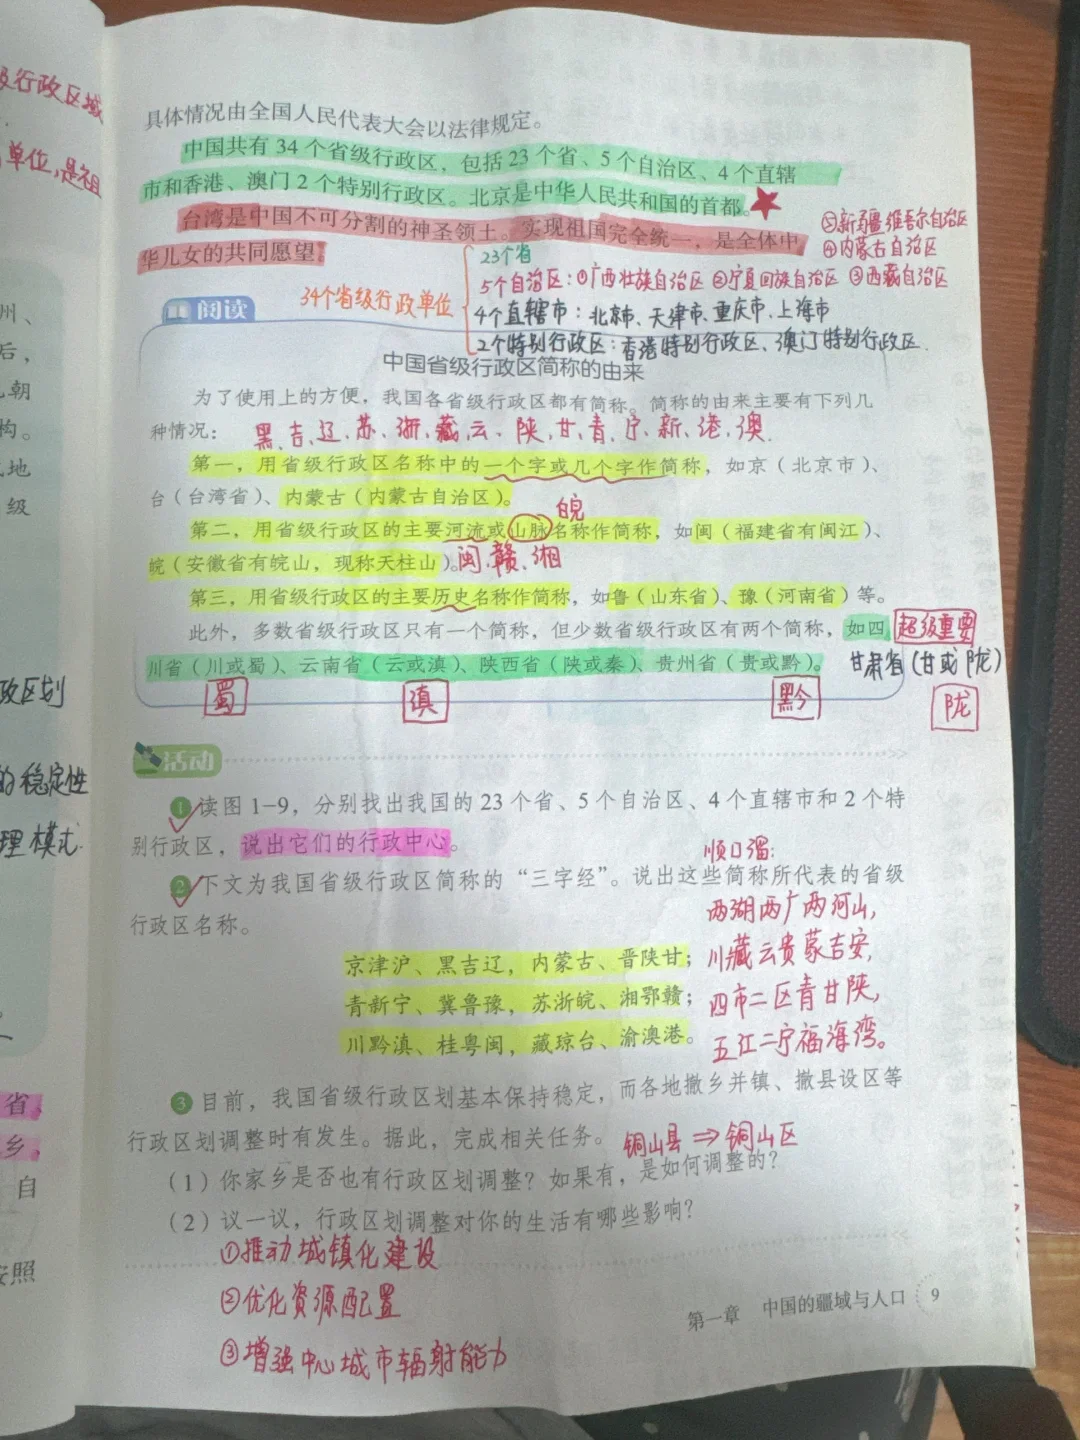 级行政区域
单位，是祖
州、
后，
朝
构。
地
级
政区划
的稳定性
理模式
省、
乡。
自
按照
具体情况由全国人民代表大会以法律规定。
中国共有 34 个省级行政区，包括 23 个省、5 个自治区、4 个直辖
市和香港、澳门 2 个特别行政区。北京是中华人民共和国的首都。
台湾是中国不可分割的神圣领土。实现祖国完全统一，是全体中
华儿女的共同愿望。
⑤新疆维吾尔自治区
④内蒙古自治区
34个省级行政单位
23个省
5个自治区：①广西壮族自治区 ②宁夏回族自治区 ③西藏自治区
4个直辖市：北京市、天津市、重庆市、上海市
2个特别行政区：香港特别行政区、澳门特别行政区.
阅读
中国省级行政区简称的由来
为了使用上的方便，我国各省级行政区都有简称。简称的由来主要有下列几
种情况：
黑、吉、辽、苏、浙、藏、云、陕、甘、青、宁、新、港、澳.
第一，用省级行政区名称中的一个字或几个字作简称，如京（北京市）、
台（台湾省）、内蒙古（内蒙古自治区）。
皖
第二，用省级行政区的主要河流或山脉名称作简称，如闽（福建省有闽江）、
皖（安徽省有皖山，现称天柱山）。闽、赣、湘
第三，用省级行政区的主要历史名称作简称，如鲁（山东省）、豫（河南省）等。
此外，多数省级行政区只有一个简称，但少数省级行政区有两个简称，如四
超级重要
川省（川或蜀）、云南省（云或滇）、陕西省（陕或秦）、贵州省（贵或黔）。
甘肃省（甘或陇）
蜀 滇 黔 陇
活动
1 读图 1-9，分别找出我国的 23 个省、5 个自治区、4 个直辖市和 2 个特
别行政区，说出它们的行政中心。
顺口溜：
2 下文为我国省级行政区简称的“三字经”。说出这些简称所代表的省级
行政区名称。
两湖两广两河山，
京津沪、黑吉辽，内蒙古、晋陕甘；
川藏云贵蒙吉安，
青新宁、冀鲁豫，苏浙皖、湘鄂赣；
四市二区青甘陕，
川黔滇、桂粤闽，藏琼台、渝澳港。
五江二宁福海湾。
3 目前，我国省级行政区划基本保持稳定，而各地撤乡并镇、撤县设区等
行政区划调整时有发生。据此，完成相关任务。
铜山县⇒铜山区
（1）你家乡是否也有行政区划调整？如果有，是如何调整的？
（2）议一议，行政区划调整对你的生活有哪些影响？
①推动城镇化建设
②优化资源配置
③增强中心城市辐射能力
第一章 中国的疆域与人口 9